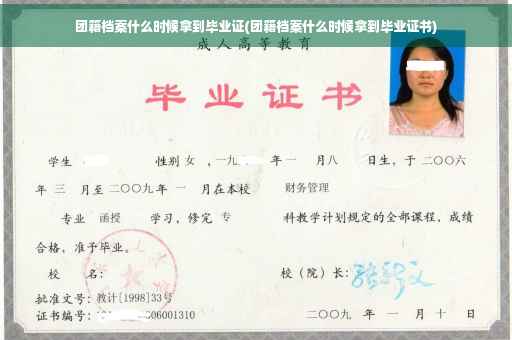 团籍档案什么时候拿到毕业证(团籍档案什么时候拿到毕业证书)
成人高等教育
毕业证书
学生 性别 女 ，一九 年 一 月八 日生，于 二〇〇六
年 三 月至 二〇〇九 年 一 月在本校 财务管理
专业 函授 学习，修完 专 科教学计划规定的全部课程，成绩
合格，准予毕业。
校 名： 校（院）长：
批准文号：教计[1998]33号
证书编号： 06001310 二〇〇九 年 一 月 十 日